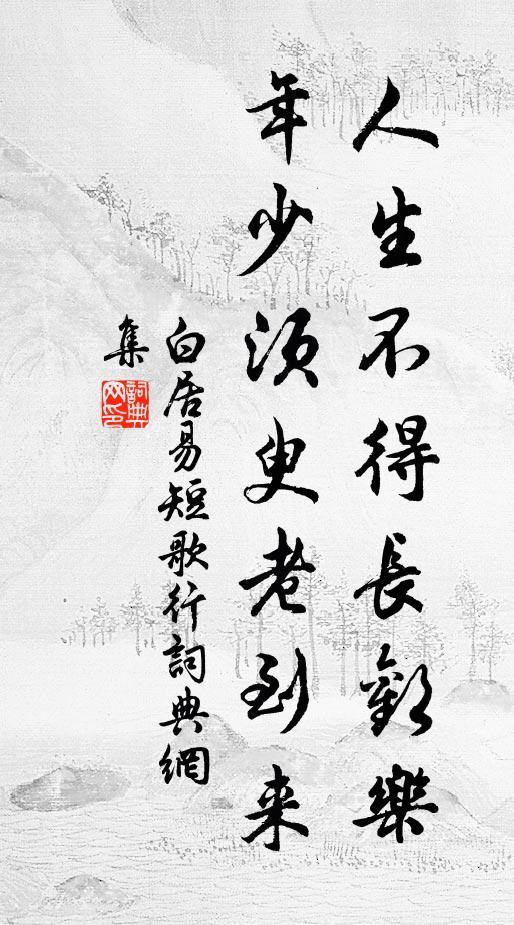 人生不得長歡樂
年少須臾老到来
白居易短歌行詞典網
集
詞典网印